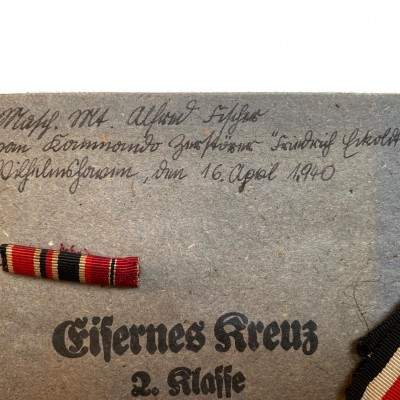 Masch. Mt. Alfred Fischer
vom Kommando Zerstörer "Friedrich Eckoldt
Wilhelmshaven, den 16. April 1940
Eisernes Kreuz
2. Klasse